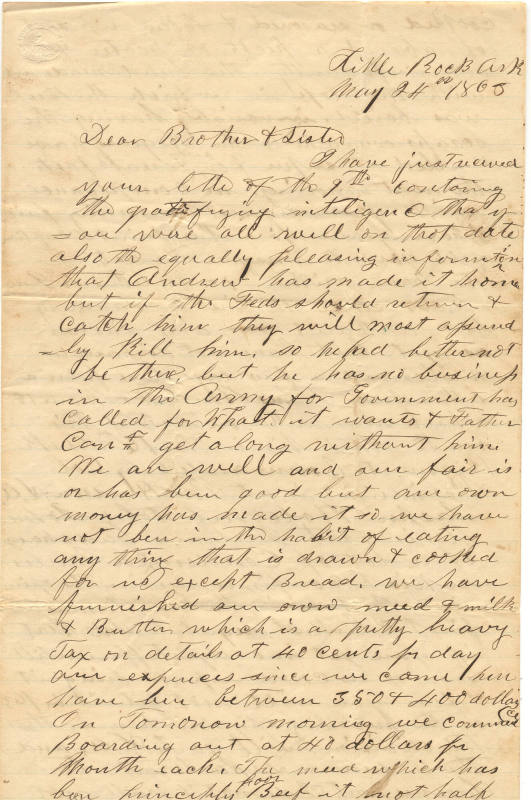 Little Rock Ark
May 24th 1863
Dear Brother & Sister
I have just received
your lette of the 9th contaning
the gratifying inteligence that y
=ou were all well on that date
also the equally pleasing information
that Andrew has made it home
but if the Feds should return &
catch him they will most assured
=ly Kill him. so he had better not
be there, but he has no business
in the Army for Government has
called for What it wants & Father
Can't get along without him
We are well and our fair is
or has been good but our own
money has made it so we have
not ben in the habit of eating
any thing that is drawn & cooked
for us except Bread. we have
furnished our own meed & milk
& Butter which is a pretty heavy
Tax on details at 40 cents pr day
our expences since we came here
have ben between 350 & 400 dollars
In Tomorrow morning we commence
Boarding out at 40 dollars pr
Month each. The meed which has
ben principly poor Beef it not half